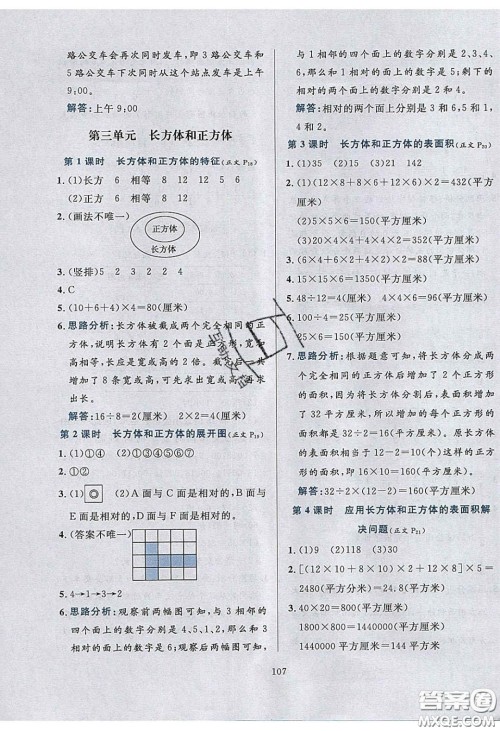 路公交车会再次同时发车,即3路公交车和5
路公交车下次同时从这个站点发车是上午
9:00。
解答:上午9:00
第三单元 长方体和正方体
第1课时 长方体和正方体的特征(正文P18)
1.(1)长方 6 相等 8 12 12 5 6
(2)正方 6 相等 8 12
2.(画法不唯一)
正方体
长方体
3.(竖排)5 2 3 2 2 4
4.C
5.(10+6+4)×4=80(厘米)
6.思路分析:长方体被截成两个完全相同的正
方体,说明长方体有2个面是正方形,宽和
高相等,长应是宽或高的2倍。截后棱长共
增加了8条宽或高,可先求出宽或高,再求
出长。
解答:16÷8=2(厘米) 2×2=4(厘米)
第2课时 长方体和正方体的展开图(正文P19)
1.(1)①④ (2)①②③④⑤⑥⑦
2.①②
3.(1) (2)A面与C面是相对的,B面与
D面是相对的,E面与F面是相对的。
4.(答案不唯一)
5.4→1→3→2
6.思路分析:观察前两幅图可知,与3相邻的
四个面上的数字分别是4、5、1、2,那么和3
相对的面上的数字是6;观察后两幅图可知,
与1相邻的四个面上的数字分别是2、3、4、
6,那么和1相对的面上的数字是5;剩下的
相对的面上的数字是4和2。
解答:相对的两个面上分别是3和6,5和1,
4和2。
第3课时 长方体和正方体的表面积(正文P20)
1.(1)35 (2)15 (3)21
2.(1)(12×8+12×6+8×6)×2=432(平
方厘米)
(2)5×5×6=150(平方厘米)
(3)20×4×4+4×4×2=352(平方厘米)
3.(6×4+6×3+4×3)×2=108(平方厘米)
4.15×15×6=1350(平方厘米)
5.48÷12=4(厘米) 4×4×6=96(平方厘米)
6.100÷4=25(平方厘米)
25×6=150(平方厘米)
7.思路分析:根据题意可知,将长方体分成两
个完全相同的正方体后增加了2个正方形
的面,增加了32平方厘米,所以每个正方形
的面积都是32÷2=16(平方厘米)。原长方
体的表面积相当于12-2=10(个)这样的正
方形的面积,即16×10=160(平方厘米)。
解答:32÷2=16(平方厘米)
16×(12-2)=160(平方厘米)
第4课时 应用长方体和正方体的表面积解
决问题(正文P21)
1.(1)9 (2)118 (3)30
2.[(12×10+8×10)×2+12×8]×5=
2480(平方分米)=24.8(平方米)
3.40×20=800(平方厘米)
1800×800=1440000(平方厘米)
1440000平方厘米=144(平方米)
107
答案圈
MXQE.COM